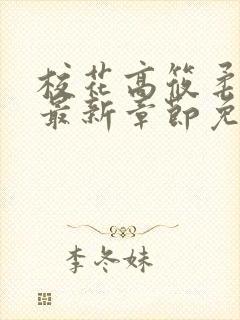 校花高筱柔
最新章节免
李冬妹